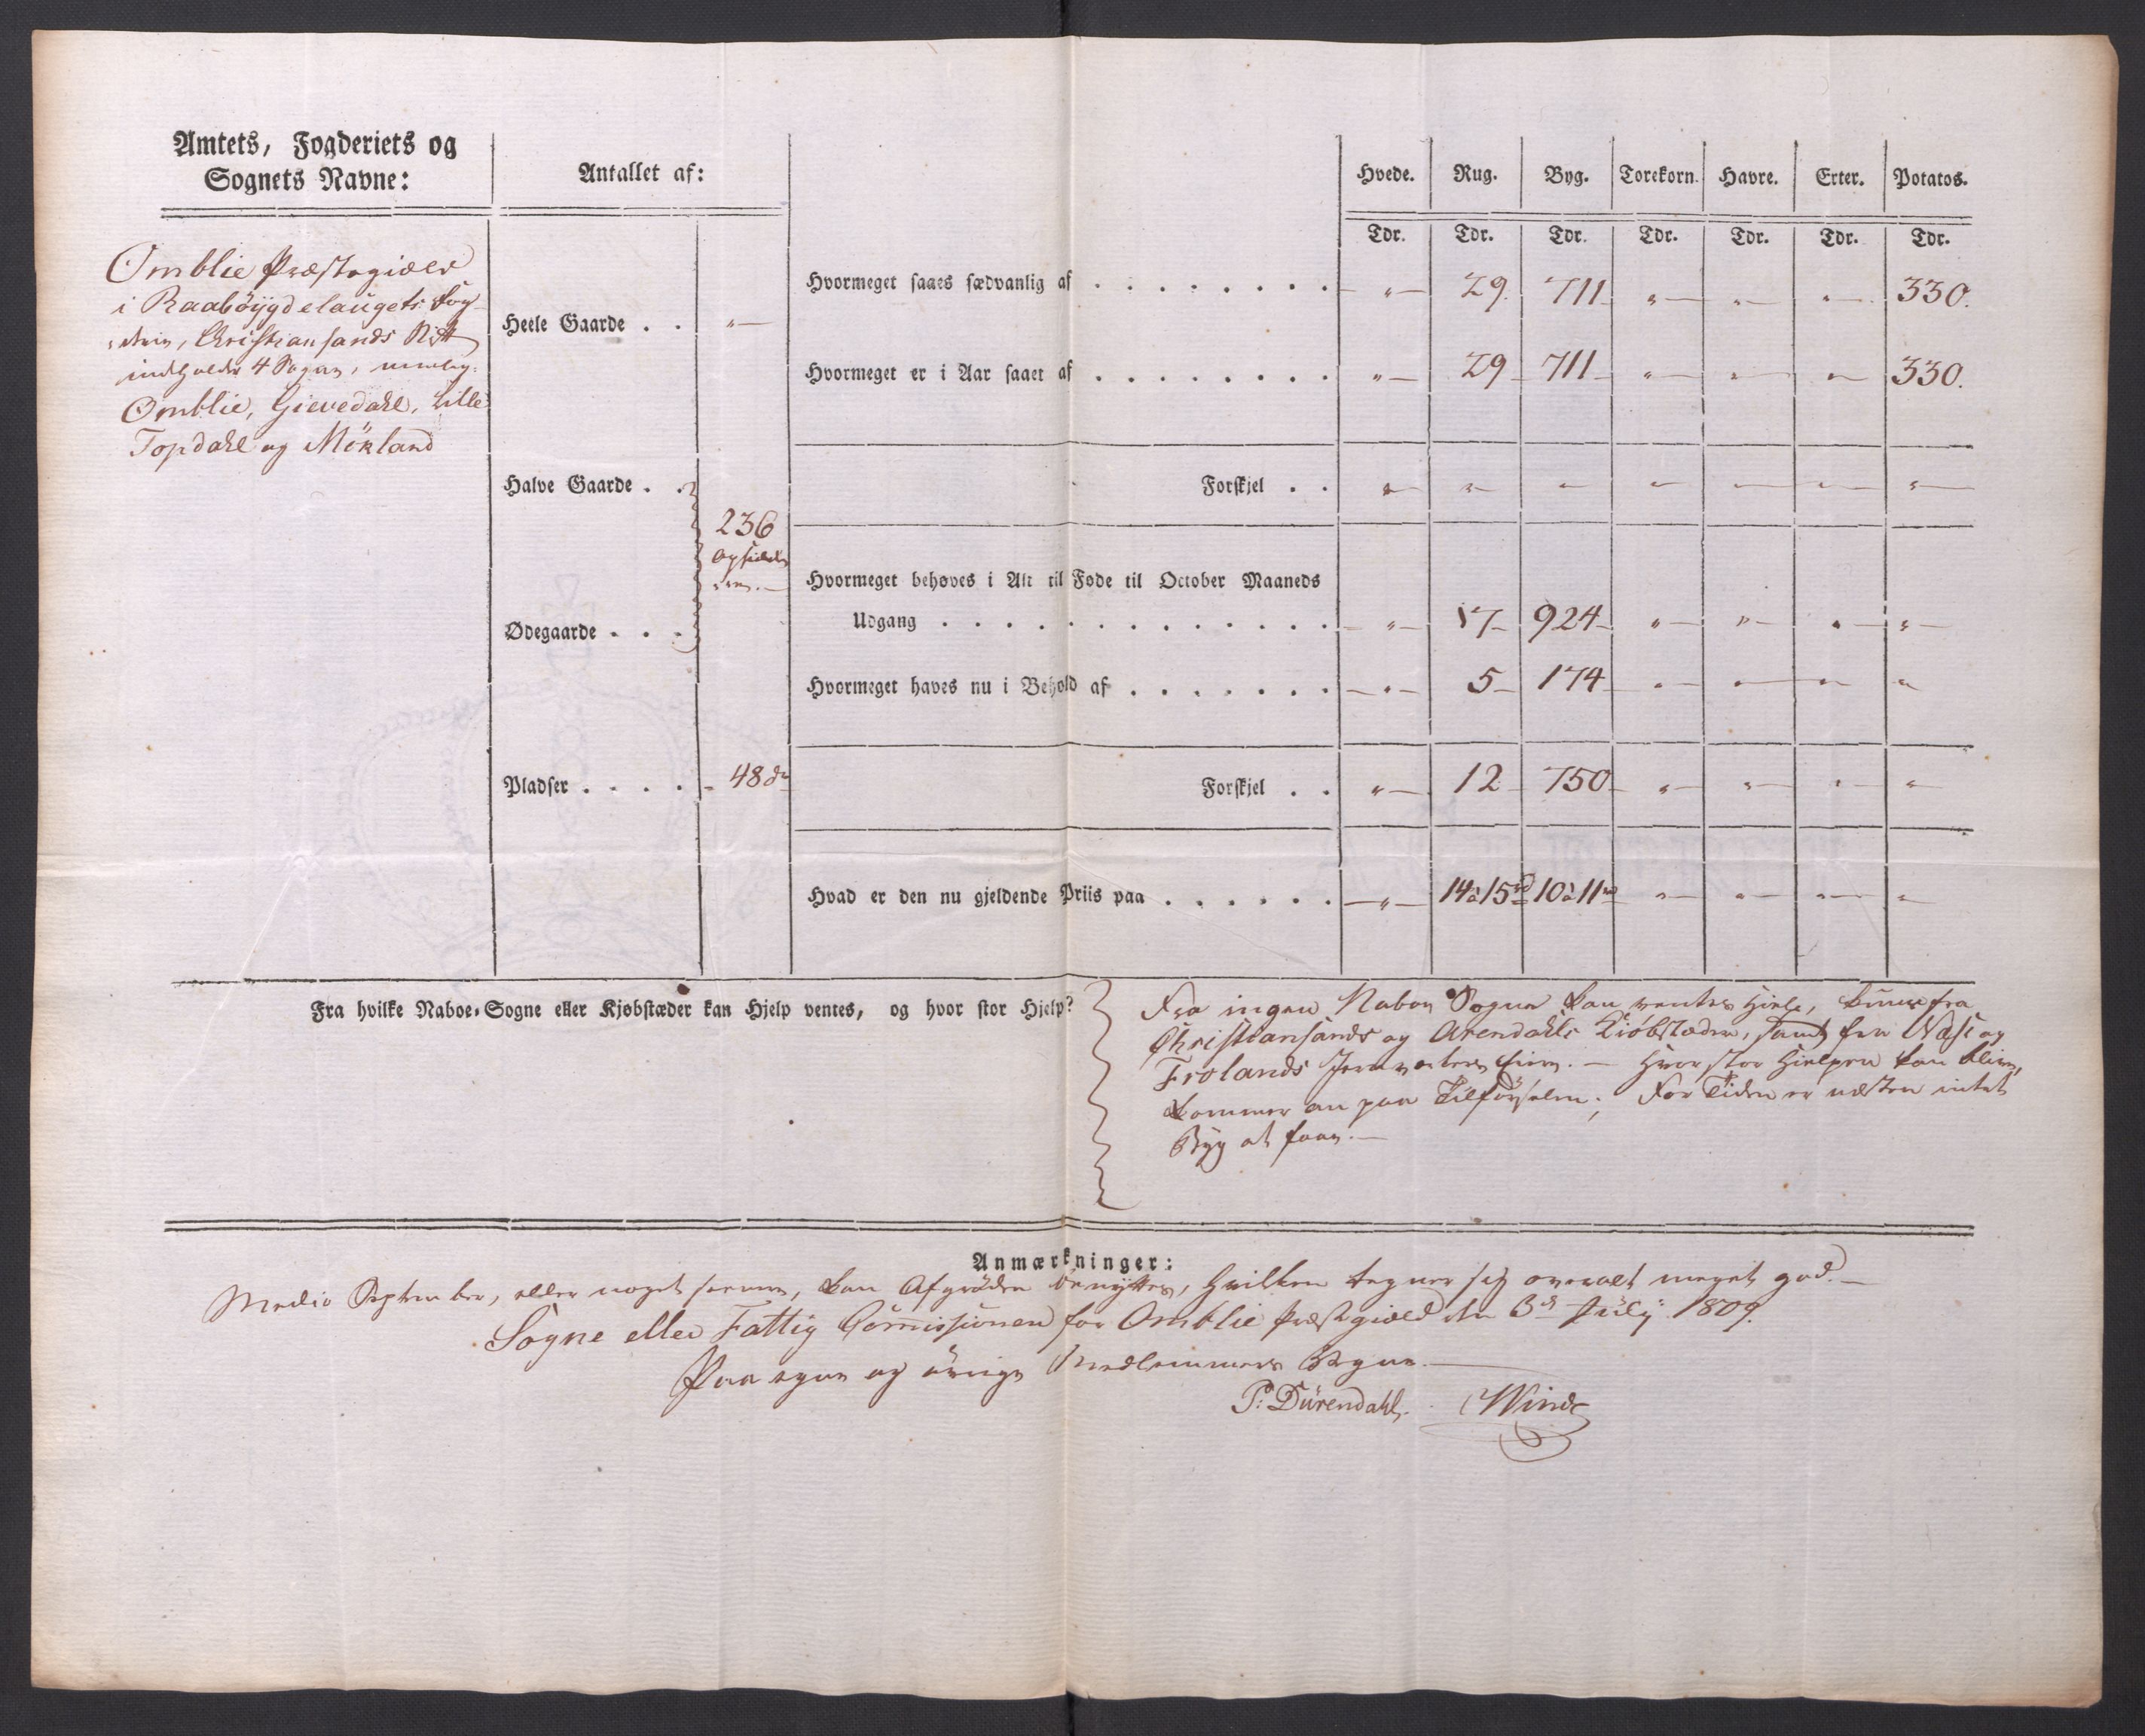 Amtets, Fogderiets og
Sognets Navne:
Antallet af:
Hvede. Rug. Byg. Torekorn. Havre. Erter. Potatos.
Tdr. Tdr. Tdr. Tdr. Tdr. Tdr. Tdr.
Omblie Præstegield
i Raabøÿgdelaugets Fog-
-derie, Christiansands Stift
indeholder 4 Sogne, nemlig:
Omblie, Gievedahl, Lille
Topdahl og Mökland
Heele Gaarde . . "
Halve Gaarde . .
236
Opsiddere
Ødegaarde . . .
Pladser . . . . 48 do
Hvormeget saaes sædvanlig af . . . . . . . . " 29. 711 " " " 330.
Hvormeget er i Aar saaet af . . . . . . . . " 29 711 " " " 330.
Forskjel . . " " " " " " "
Hvormeget behøves i Alt til Føde til October Maaneds
Udgang . . . . . . . . . . . . . " 17 924 " " " "
Hvormeget haves nu i Behold af . . . . . . . " 5 174 " " " "
Forskjel . . " 12 750 " " " "
Hvad er den nu gjeldende Priis paa . . . . . . " 14 à 15 rd 10 à 11 rd " " " "
Fra hvilke Naboe-Sogne eller Kjøbstæder kan Hjelp ventes, og hvor stor Hjelp?
Fra ingen Naboe Sogne kan ventes Hielp, kuns fra
Christiansands og Arendahls Kiöbstæder, samt fra Næs og
Frolands Jernverkers Eiere. — Hvor stor Hielpen kan blive,
kommer an paa Tilførselen; For Tiden er næsten intet
Byg at faae. —
Anmærkninger:
Medio September, eller noget senere, kan Afgrøden benyttes, hvilken tegner sig overalt meget god. —
Sogne eller Fattig Commissionen for Omblie Præstegield den 3d Julÿ 1809.
Paa egne og øvrige Medlemmers Vegne. —
P: Dürendahl. Winde